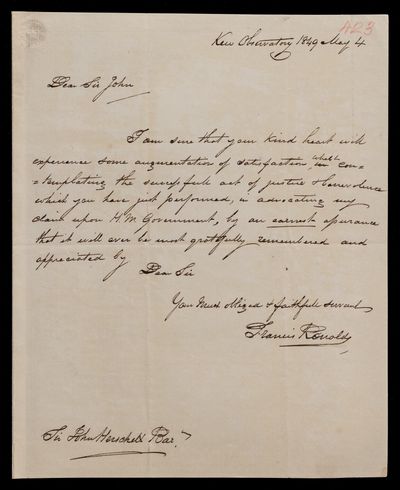 423
Kew Observatory 1849 May 4
Dear Sir John
I am sure that your kind heart will
experience some augmentation of satisfaction whilst in con=
=templating the successfull act of justice & benevolence
which you have just performed, in advocating my
claim upon H.M. Government, by an earnest assurance
that it will ever be most gratefully remembered and
appreciated by
Dear Sir
Your Much obliged & faithfull servant
Francis Ronalds
Sir John Herschell Bar.t